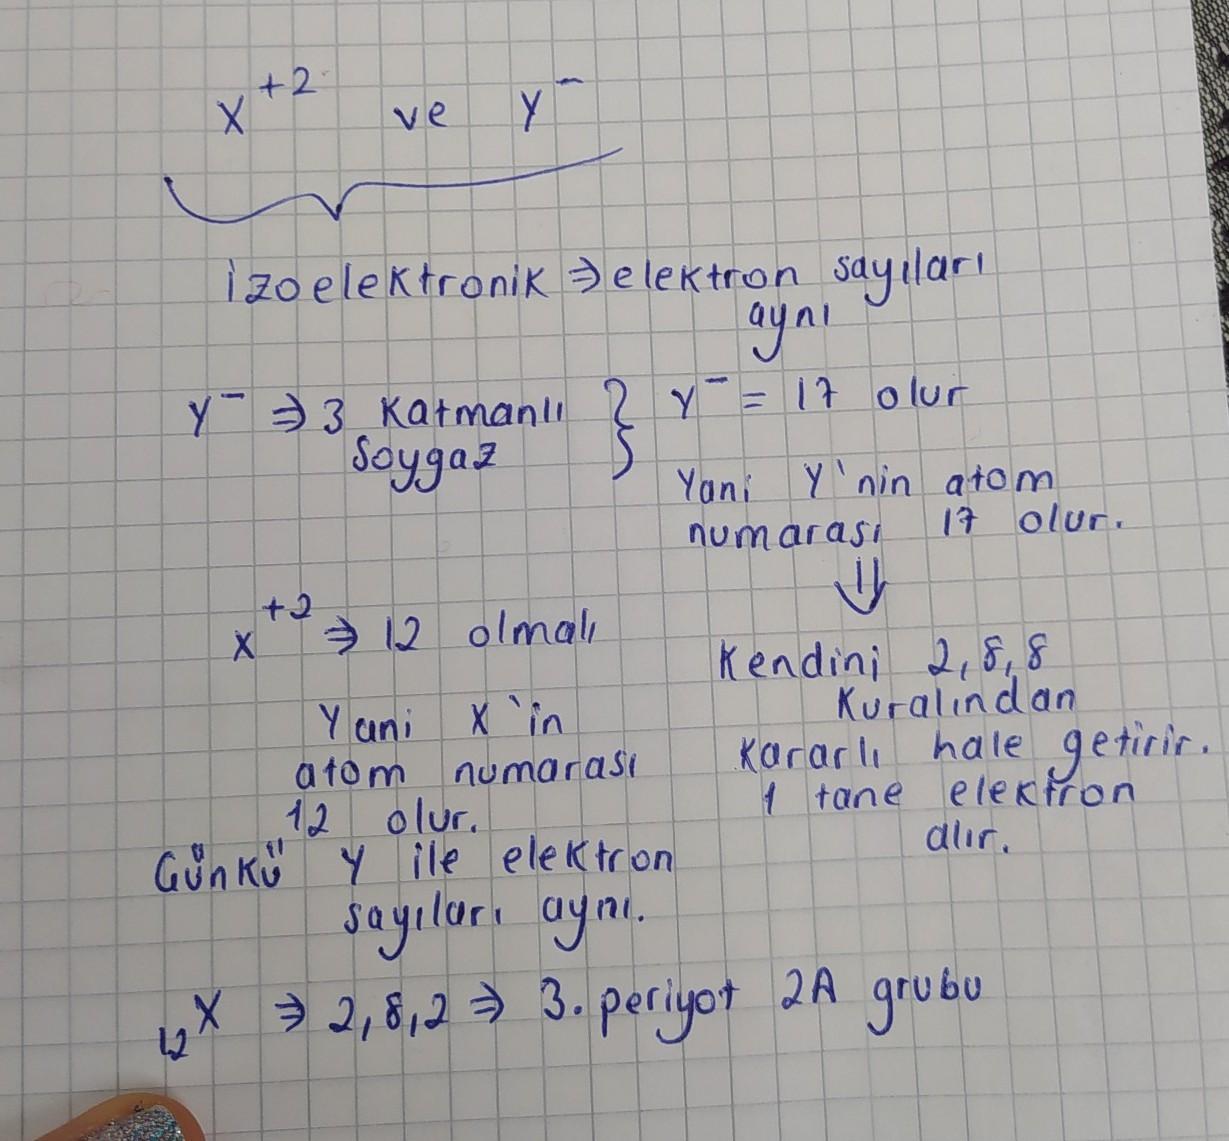 X⁺² ve Y⁻
izoelektronik ⇒ elektron sayıları
aynı
Y⁻ ⇒ 3 katmanlı
soygaz
} Y⁻ = 17 olur
Yani Y'nin atom
numarası 17 olur.
⇓
Kendini 2,8,8
kuralından
kararlı hale getirir.
1 tane elektron
alır.
X⁺² ⇒ 12 olmalı
Yani X'in
atom numarası
12 olur.
Günkü Y ile elektron
sayıları aynı.
₁₂X ⇒ 2,8,2 ⇒ 3. periyot 2A grubu